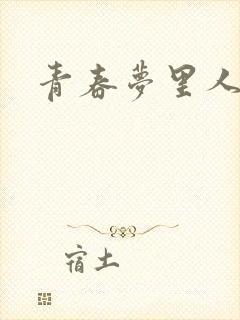 青春夢里人
宿土